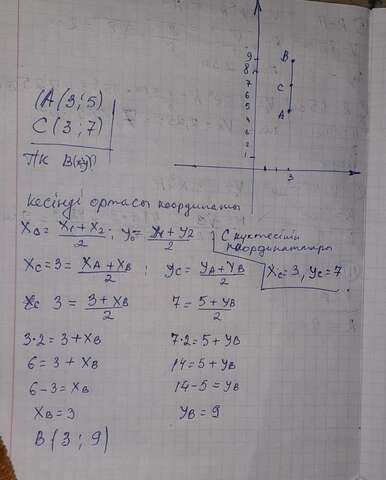 (A(3;5)
C(3;7)
Тк B(x;y)
9
8
7
6
5
4
3
2
1
B
C
A
3
кесінді ортасы координаты
X₀=\frac{X₁+X₂}{2}; y₀=\frac{y₁+y₂}{2}
C нүктесінің
координаттары
X_C=3, y_C=7
X_C=3=\frac{X_A+X_B}{2}; y_C=\frac{y_A+y_B}{2}
3=\frac{3+X_B}{2} 7=\frac{5+y_B}{2}
3·2=3+X_B 7·2=5+y_B
6=3+X_B 14=5+y_B
6-3=X_B 14-5=y_B
X_B=3 y_B=9
B(3;9)